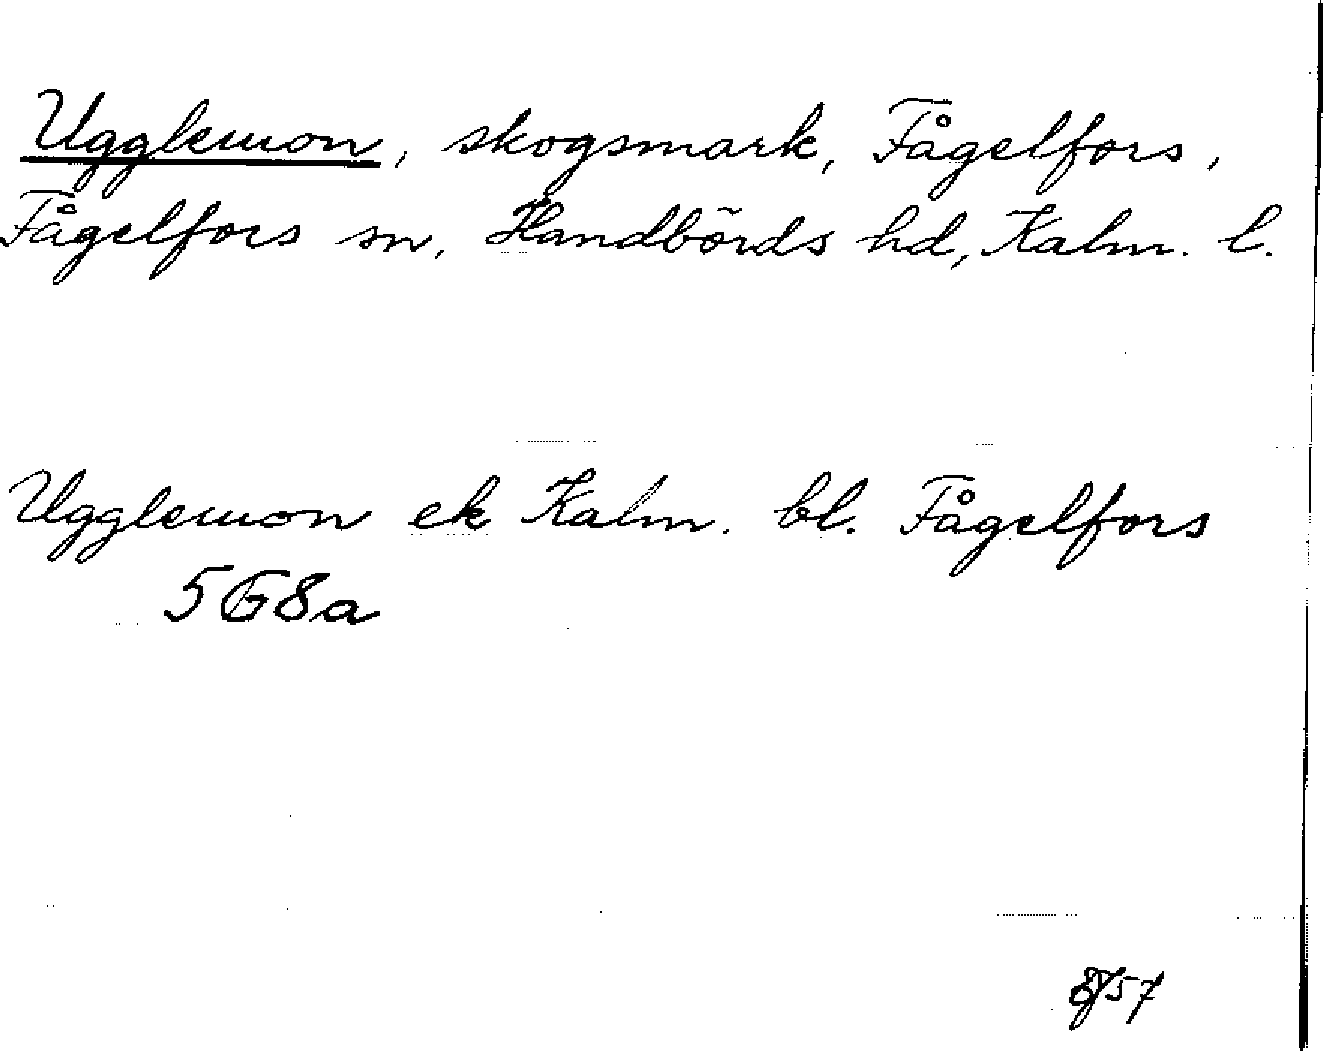 Ugglemon, skogsmark, Fågelfors,
Fågelfors sn, Handbörds hd, Kalm. l.
Ugglemon ek Kalm. bl. Fågelfors
5G8a